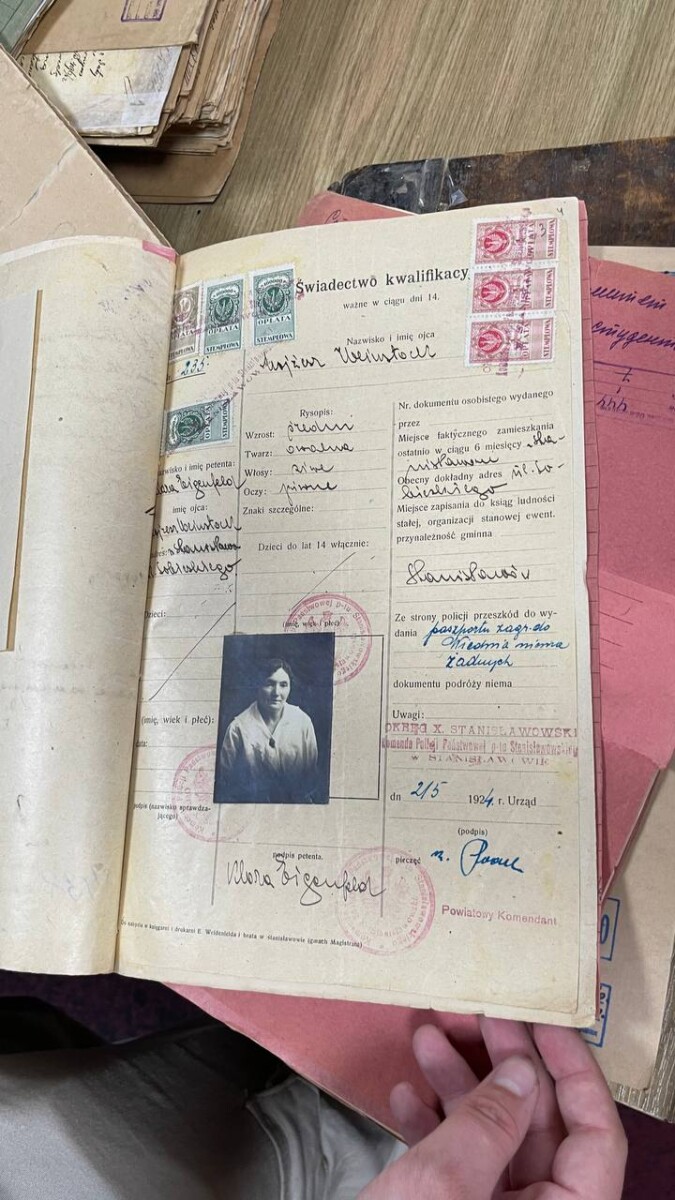 Świadectwo kwalifikacy
ważne w ciągu dni 14.
OPŁATA
STEMPLOWA
OPŁATA
STEMPLOWA
OPŁATA
STEMPLOWA
OPŁATA
STEMPLOWA
OPŁATA
STEMPLOWA
OPŁATA
STEMPLOWA
235.
Nazwisko i imię ojca
Mojżesz Weinstock
OPŁATA
STEMPLOWA
azwisko i imię petenta:
lara Eigenfeld
imię ojca
Weinstock
Stanisławów
Sobieskiego
Dzieci:
(imię, wiek i płeć):
podpis (nazwisko sprawdza-
jącego)
Rysopis:
Wzrost: średni
Twarz: owalna
Włosy: siwe
Oczy: piwne
Znaki szczególne:
Dzieci do lat 14 włącznie:
(imię, wiek i płeć)
podpis petenta.
Klara Eigenfeld
Nr. dokumentu osobistego wydanego
przez
Miejsce faktycznego zamieszkania
ostatnio w ciągu 6 miesięcy Sta-
nisławow
Obecny dokładny adres ul. So-
bieskiego
Miejsce zapisania do ksiąg ludności
stałej, organizacji stanowej ewent.
przynależność gminna
Stanisławów
Ze strony policji przeszkód do wy-
dania paszportu zagr. do
Wiednia niema
żadnych
dokumentu podróży niema
Uwagi:
OKRĘG X. STANISŁAWOWSKI
Komenda Policji Państwowej p-tu Stanisławowskiego
w STANISŁAWOWIE
dn 2/5 1924. r. Urząd
(podpis)
pieczęć
Powiatowy Komendant
Do nabycia w księgarni i drukarni E. Weidenfelda i brata w Stanisławowie (gmach Magistratu)